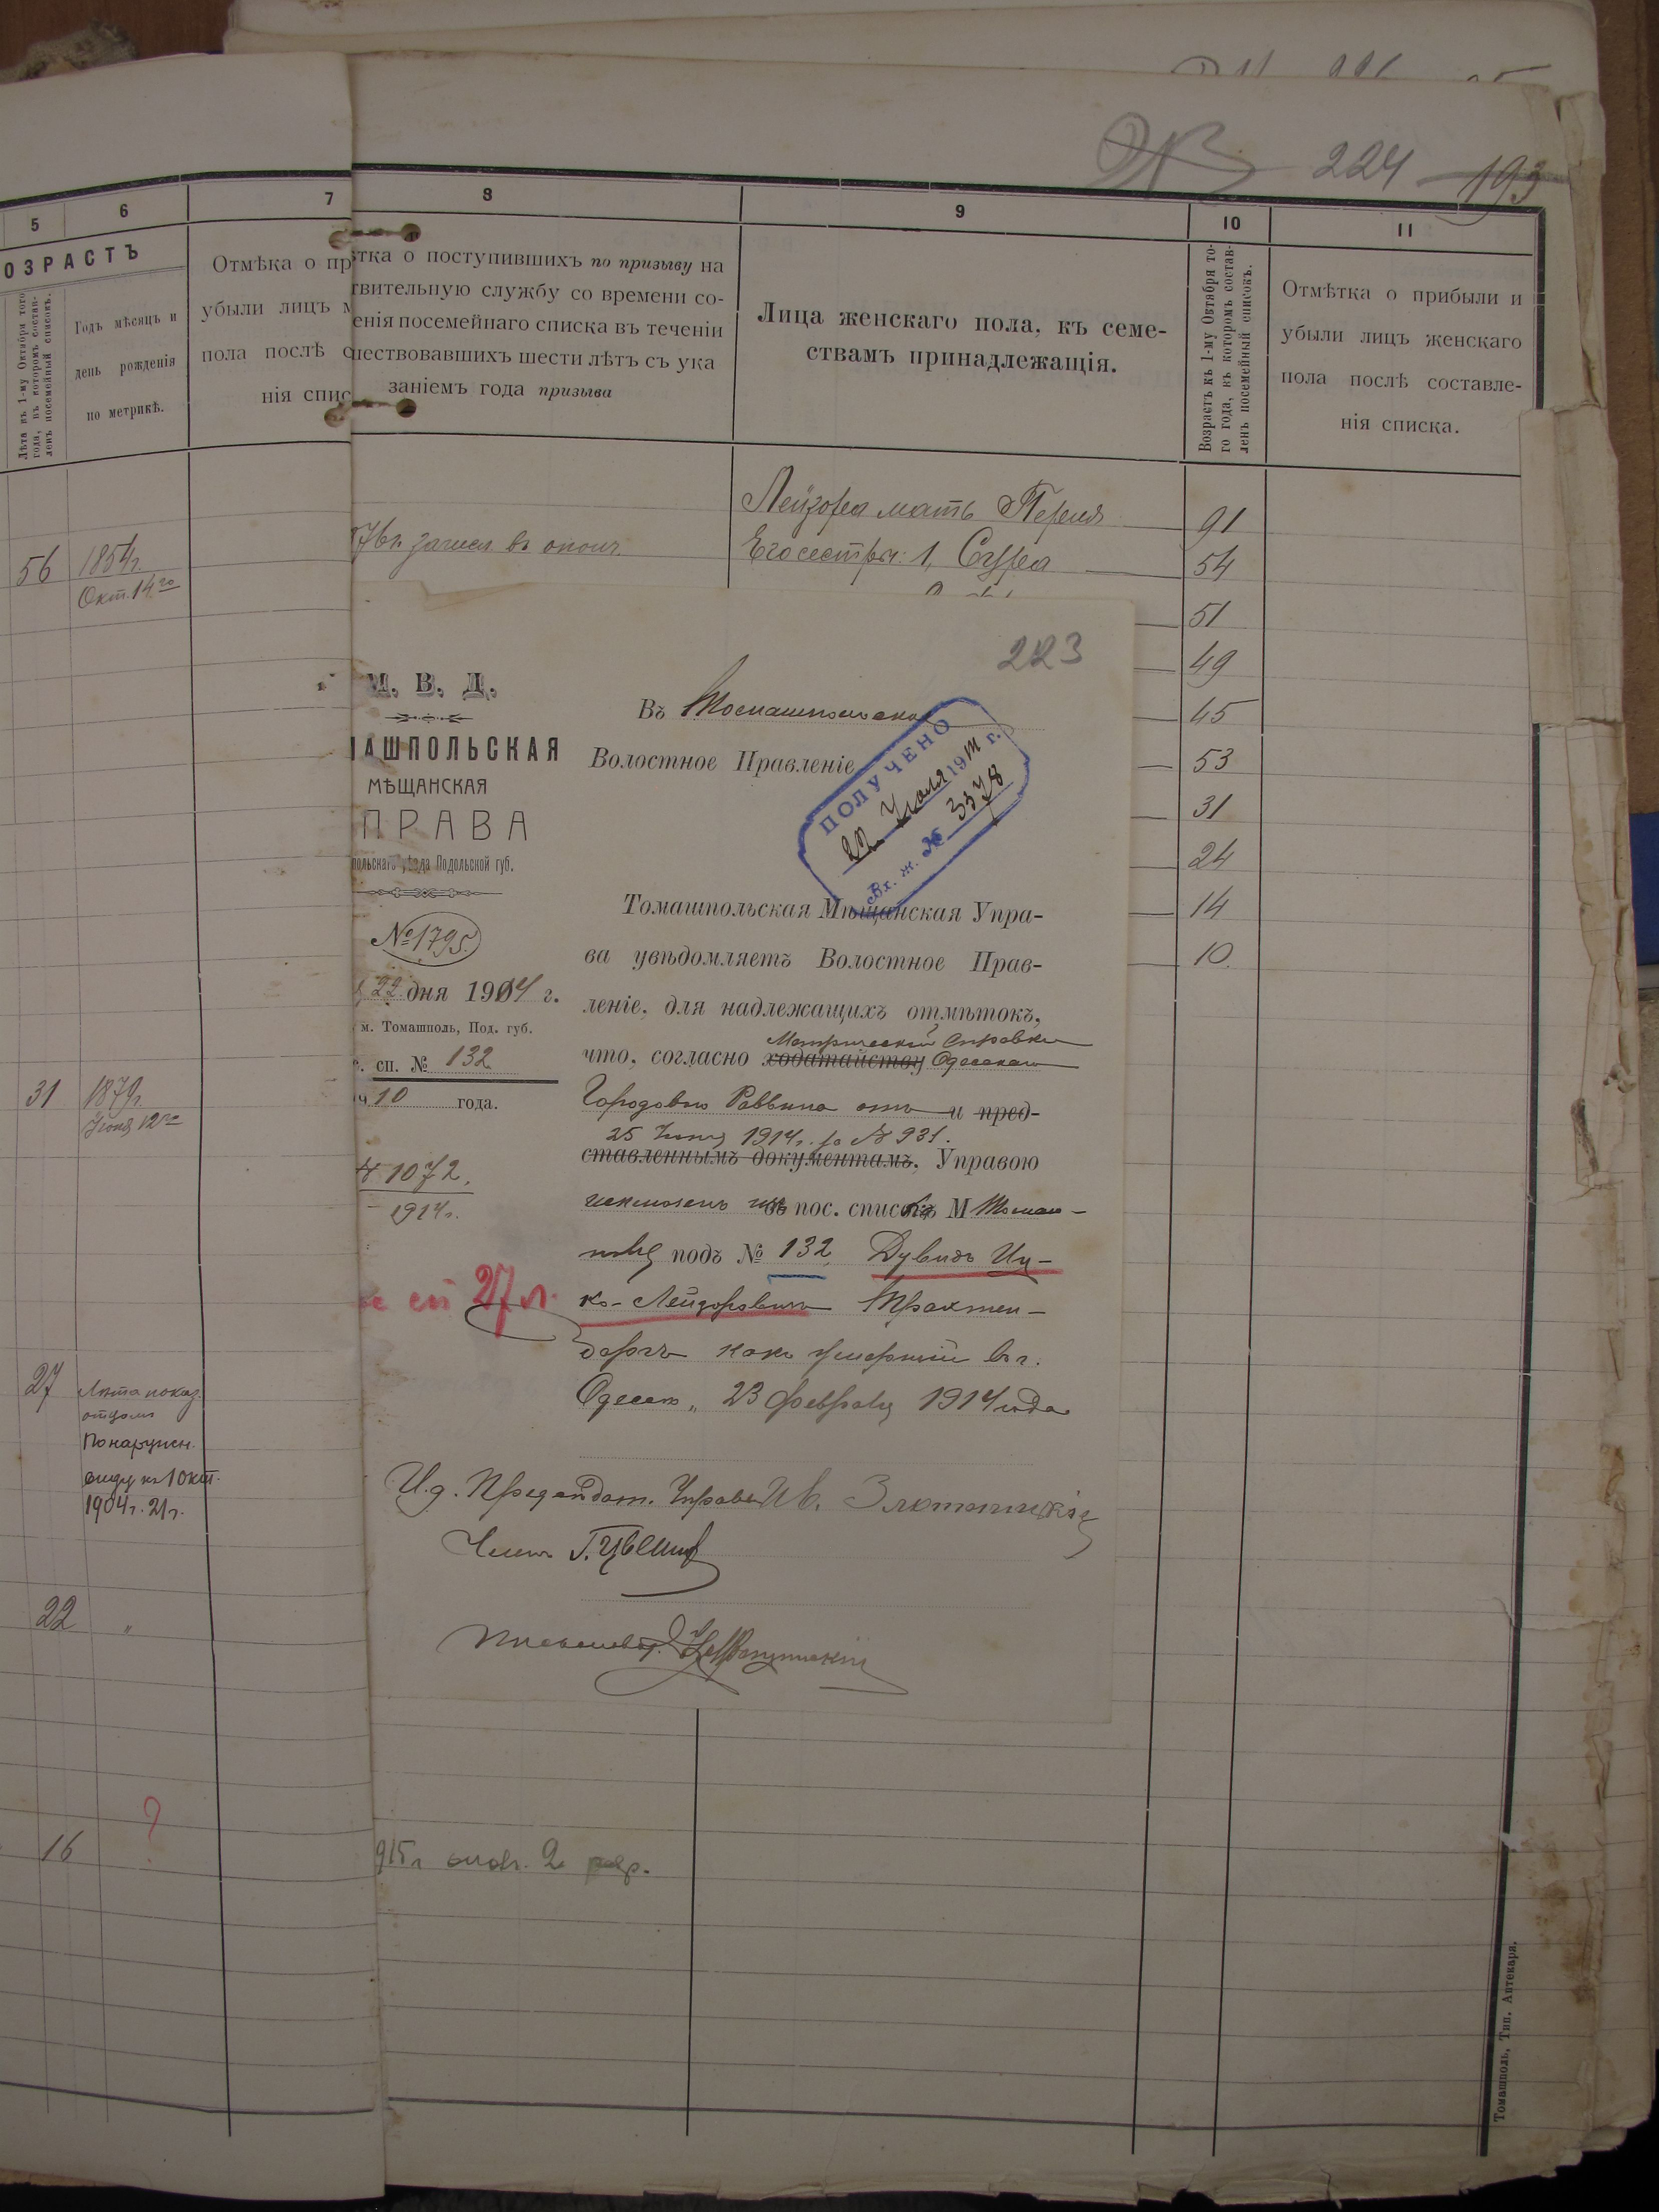 224 193
5 6 7 8 9 10 11
ОЗРАСТЪ
Лѣта къ 1-му Октября того
года, въ которомъ состав-
ленъ посемейный списокъ.
Годъ мѣсяцъ и
день рожденія
по метрикѣ.
Отмѣка о пр
убыли лицъ м
пола послѣ с
нія спис
тка о поступившихъ по призыву на
твительную службу со времени со-
енія посемейнаго списка въ теченіи
шествовавшихъ шести лѣтъ съ ука
заніемъ года призыва
Лица женскаго пола, къ семе-
ствамъ принадлежащія.
Возрастъ къ 1-му Октября то-
го года, къ которомъ состав-
ленъ посемейный списокъ.
Отмѣтка о прибыли и
убыли лицъ женскаго
пола послѣ составле-
нія списка.
56 1854г.
Окт. 14го
31 1879г.
Іюня 12го
27 Лѣта показ.
отцомъ
По наружн.
виду къ 1 окт.
1904 г. 21 г.
22 "
?
16
зачисл. въ ополч.
Лейзора мать Перля 91
Его сестры: 1, Сура 54
51
49
45
53
31
24
14
10.
223
М. В. Д.
АШПОЛЬСКАЯ
МѢЩАНСКАЯ
ПРАВА
польскаго уѣзда Подольской губ.
№ 1795.
22 дня 1914 г.
м. Томашполь, Под. губ.
сп. № 132
10 года.
1072.
1914 г.
27 л.
Въ Томашпольское
Волостное Правленіе
ПОЛУЧЕНО
22 Іюля 1914 г.
Вх. ж. № 3378
Томашпольская Мѣщанская Упра-
ва увѣдомляетъ Волостное Прав-
леніе, для надлежащихъ отмѣтокъ,
Метрической Справки
что, согласно ходатайству Одесскаго
Городового Раввина отъ и пред-
25 Іюня 1914 г. за № 931.
ставленнымъ документамъ, Управою
исключенъ изъ пос. списка М Томаш-
поля подъ № 132, Дувидъ Иц-
ко-Лейзоровичъ Трахтен-
бергъ какъ умершій въ г.
Одессѣ, 23 Февраля 1914 года
И.д. Председат. Управы Ив. Злотницкій
Членъ
915 г. 2
Томашполь, Тип. Аптекаря.